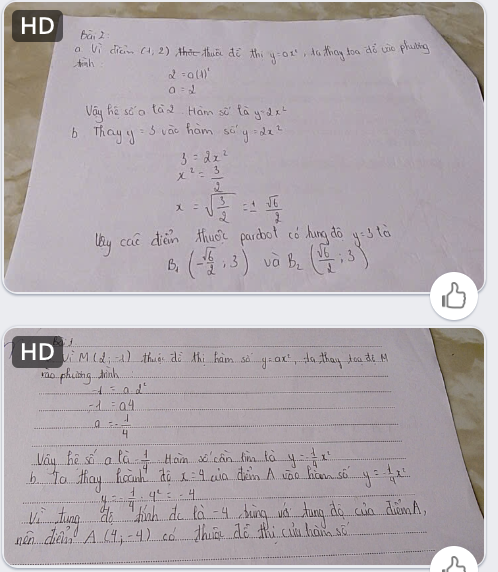 HD
Bài 2:
a. Vì điểm (1, 2) thuộc đồ thị y=ax², ta thay toạ độ vào phương
trình
2 = a(1)²
a = 2
Vậy hệ số a là 2 Hàm số là y=2x²
b Thay y = 3 vào hàm số y=2x²
3 = 2x²
x² = 3/2
x = √(3/2) = ± √6/2
Vậy các điểm thuộc parbol có tung độ y=3 là
B₁ (-√6/2 ; 3) và B₂ (√6/2 ; 3)
HD
Vì M(2, -1) thuộc đồ thị hàm số y=ax², ta thay toạ độ M
vào phương trình
-1 = a.2²
-1 = a4
a = -1/4
Vậy hệ số a là -1/4 Hàm số cần tìm là y = -1/4x²
b. Ta thay hoành độ x = 4 của điểm A vào hàm số y = -1/4x²
y = -1/4 . 4² = -4
Vì tung độ tính đc là -4 đúng với tung độ của điểm A,
nên điểm A (4, -4) có thuộc đồ thị của hàm số